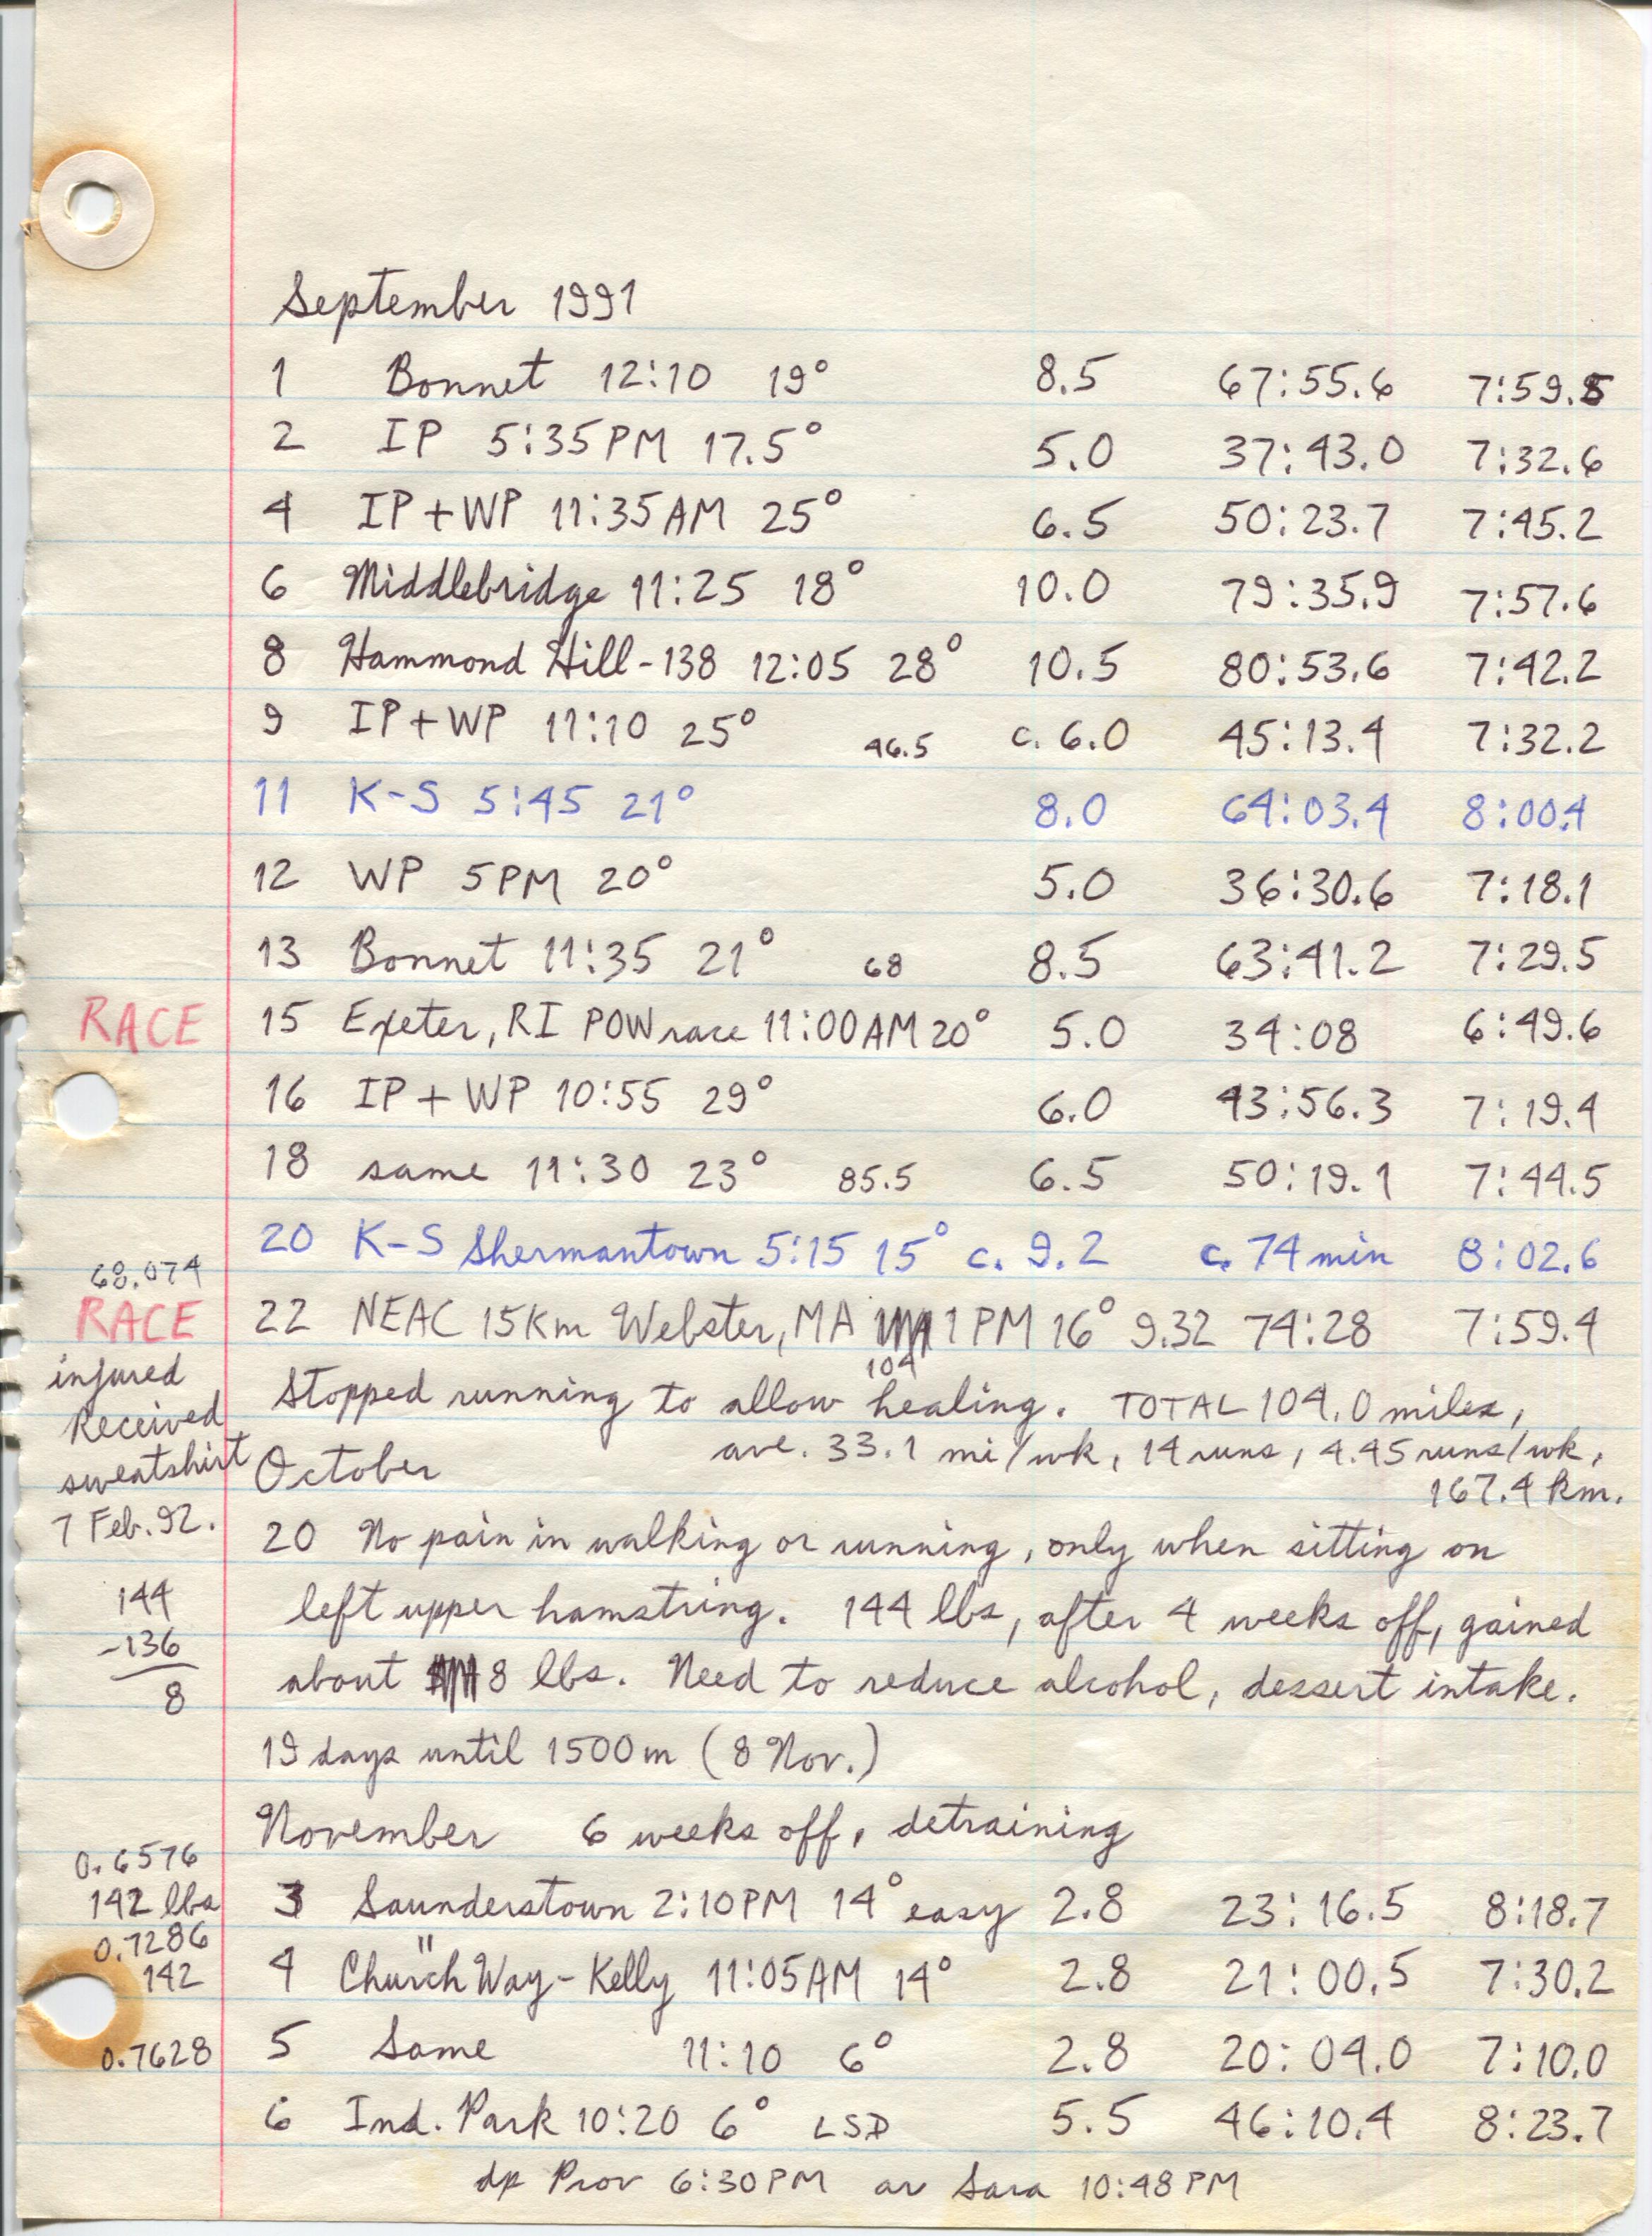 September 1991
1 Bonnet 12:10 19° 8.5 67:55.6 7:59.5
2 IP 5:35PM 17.5° 5.0 37:43.0 7:32.6
4 IP+WP 11:35AM 25° 6.5 50:23.7 7:45.2
6 Middlebridge 11:25 18° 10.0 79:35.9 7:57.6
8 Hammond Hill-138 12:05 28° 10.5 80:53.6 7:42.2
9 IP+WP 11:10 25° 46.5 c. 6.0 45:13.4 7:32.2
11 K-S 5:45 21° 8.0 64:03.4 8:00.4
12 WP 5PM 20° 5.0 36:30.6 7:18.1
13 Bonnet 11:35 21° 68 8.5 63:41.2 7:29.5
RACE 15 Exeter, RI POW race 11:00AM 20° 5.0 34:08 6:49.6
16 IP+WP 10:55 29° 6.0 43:56.3 7:19.4
18 same 11:30 23° 85.5 6.5 50:19.1 7:44.5
20 K-S Shermantown 5:15 15° c. 9.2 c. 74 min 8:02.6
68.074
RACE 22 NEAC 15Km Webster, MA 1PM 16° 9.32 74:28 7:59.4
104
injured Stopped running to allow healing. TOTAL 104.0 miles,
Received ave. 33.1 mi/wk, 14 runs, 4.45 runs/wk,
sweatshirt October 167.4 km.
7 Feb. 92. 20 No pain in walking or running, only when sitting on
144 left upper hamstring. 144 lbs, after 4 weeks off, gained
-136
8 about 8 lbs. Need to reduce alcohol, dessert intake.
19 days until 1500m (8 Nov.)
November 6 weeks off, detraining
0.6576
142 lbs 3 Saunderstown 2:10PM 14° easy 2.8 23:16.5 8:18.7
0.7286
142 4 Church Way-Kelly 11:05AM 14° 2.8 21:00.5 7:30.2
0.7628 5 Same 11:10 6° 2.8 20:04.0 7:10.0
6 Ind. Park 10:20 6° LSD 5.5 46:10.4 8:23.7
dp Prov 6:30PM ar Sara 10:48PM